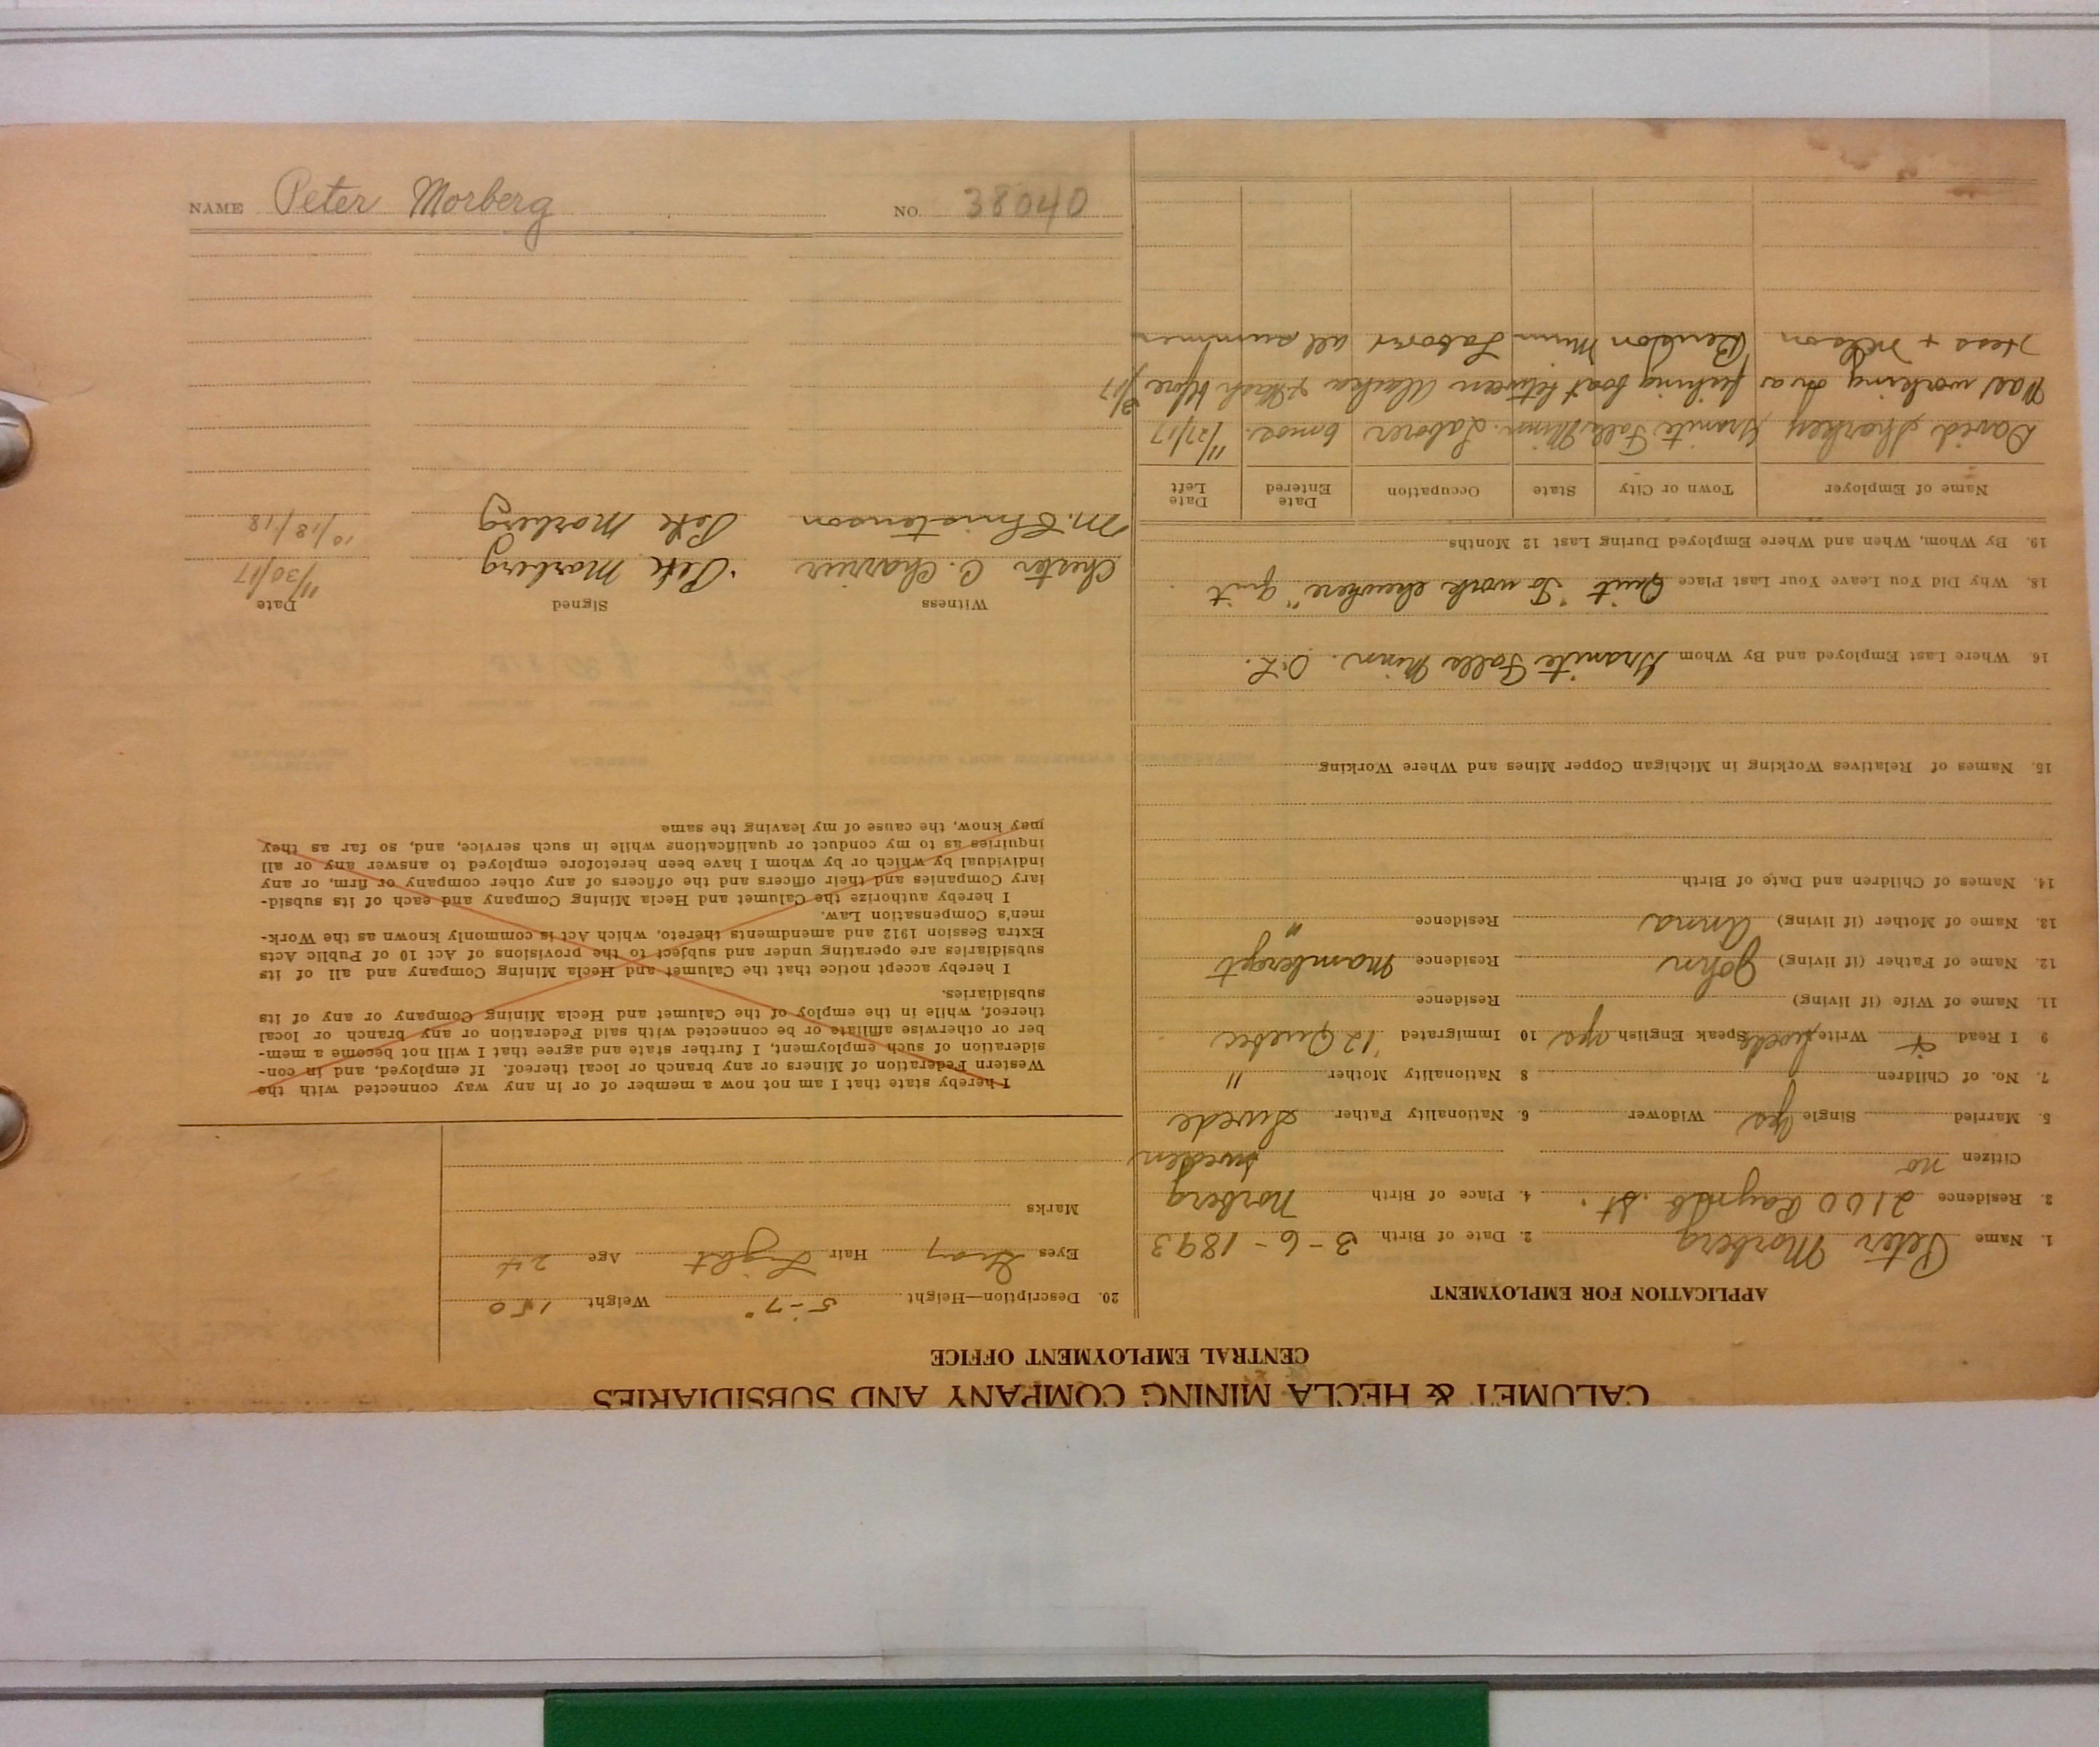 NAME Peter Morberg NO. 38040
CALUMET & HECLA MINING COMPANY AND SUBSIDIARIES
CENTRAL EMPLOYMENT OFFICE
APPLICATION FOR EMPLOYMENT
1. Name Peter Morberg 2. Date of Birth 3-6-1893
3. Residence 2100 St. 4. Place of Birth Norberg
Citizen no Sweden
5. Married Single yes Widower 6. Nationality Father Swede
7. No. of Children 8 Nationality Mother "
9 I Read & Write Swede Speak English yes 10 Immigrated '12 Quebec
11. Name of Wife (if living) Residence
12. Name of Father (if living) John Residence Mamberget
13. Name of Mother (if living) Anna Residence "
14. Names of Children and Date of Birth
15. Names of Relatives Working in Michigan Copper Mines and Where Working
16. Where Last Employed and By Whom Granite Falls Minn. O.K.
18. Why Did You Leave Your Last Place Quit "To work elsewhere" quit
19. By Whom, When and Where Employed During Last 12 Months
Name of Employer Town or City State Occupation Date Entered Date Left
David Sharkey Granite Falls Minn. Laborer 6 mos. 11/27/17
Was working on a fishing boat between Alaska & Wash before 3/17
Hess + Nelson Benson Minn Laborer all summer
20. Description—Height 5-7" Weight 150
Eyes Gray Hair Light Age 24
Marks
I hereby state that I am not now a member of or in any way connected with the
Western Federation of Miners or any branch or local thereof. If employed, and in con-
sideration of such employment, I further state and agree that I will not become a mem-
ber or otherwise affiliate or be connected with said Federation or any branch or local
thereof, while in the employ of the Calumet and Hecla Mining Company or any of its
subsidiaries.
I hereby accept notice that the Calumet and Hecla Mining Company and all of its
subsidiaries are operating under and subject to the provisions of Act 10 of Public Acts
Extra Session 1912 and amendments thereto, which Act is commonly known as the Work-
men's Compensation Law.
I hereby authorize the Calumet and Hecla Mining Company and each of its subsid-
iary Companies and their officers and the officers of any other company or firm, or any
individual by which or by whom I have been heretofore employed to answer any or all
inquiries as to my conduct or qualifications while in such service, and, so far as they
may know, the cause of my leaving the same
Witness Signed Date
Chester C. Charrier Pete Morberg 11/30/17
M. Christenson Pete Morberg 10/18/18